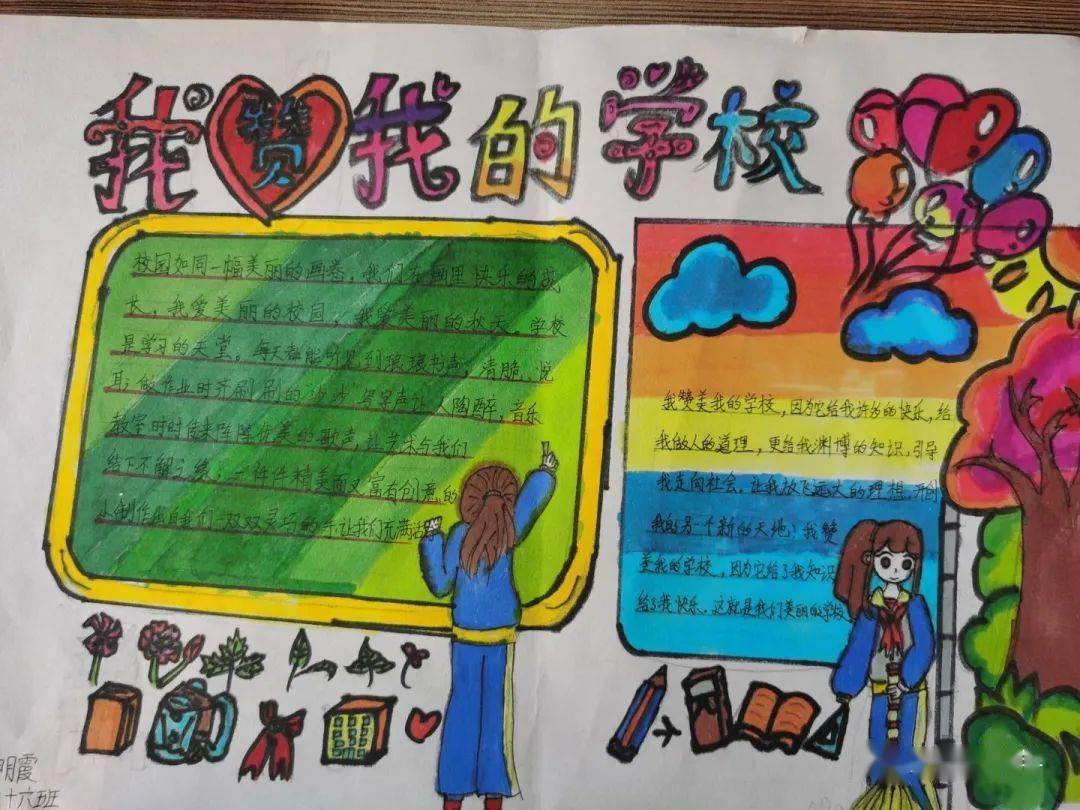 我赞我的学校
校园如同一幅美丽的画卷，我们在画里快乐的成
长，我爱美丽的校园，我爱美丽的秋天。学校
是学习的天堂。每天都能听见到琅琅书声，清脆、悦
耳；做作业时齐刷刷的“沙沙”写字声让人陶醉，音乐
教室时时传来阵阵优美的歌声，让艺术与我们
结下不解之缘，一件件精美而又富有创意的
小制作出自我们一双双灵巧的手让我们充满
我赞美我的学校，因为它给我许多的快乐，给
我做人的道理，更给我渊博的知识，引导
我走向社会，让我放飞远大的理想，开创
我的另一个新的天地！我赞
美我的学校，因为它给了我知识
给了我快乐。这就是我们美丽的学校
明霞
十六班